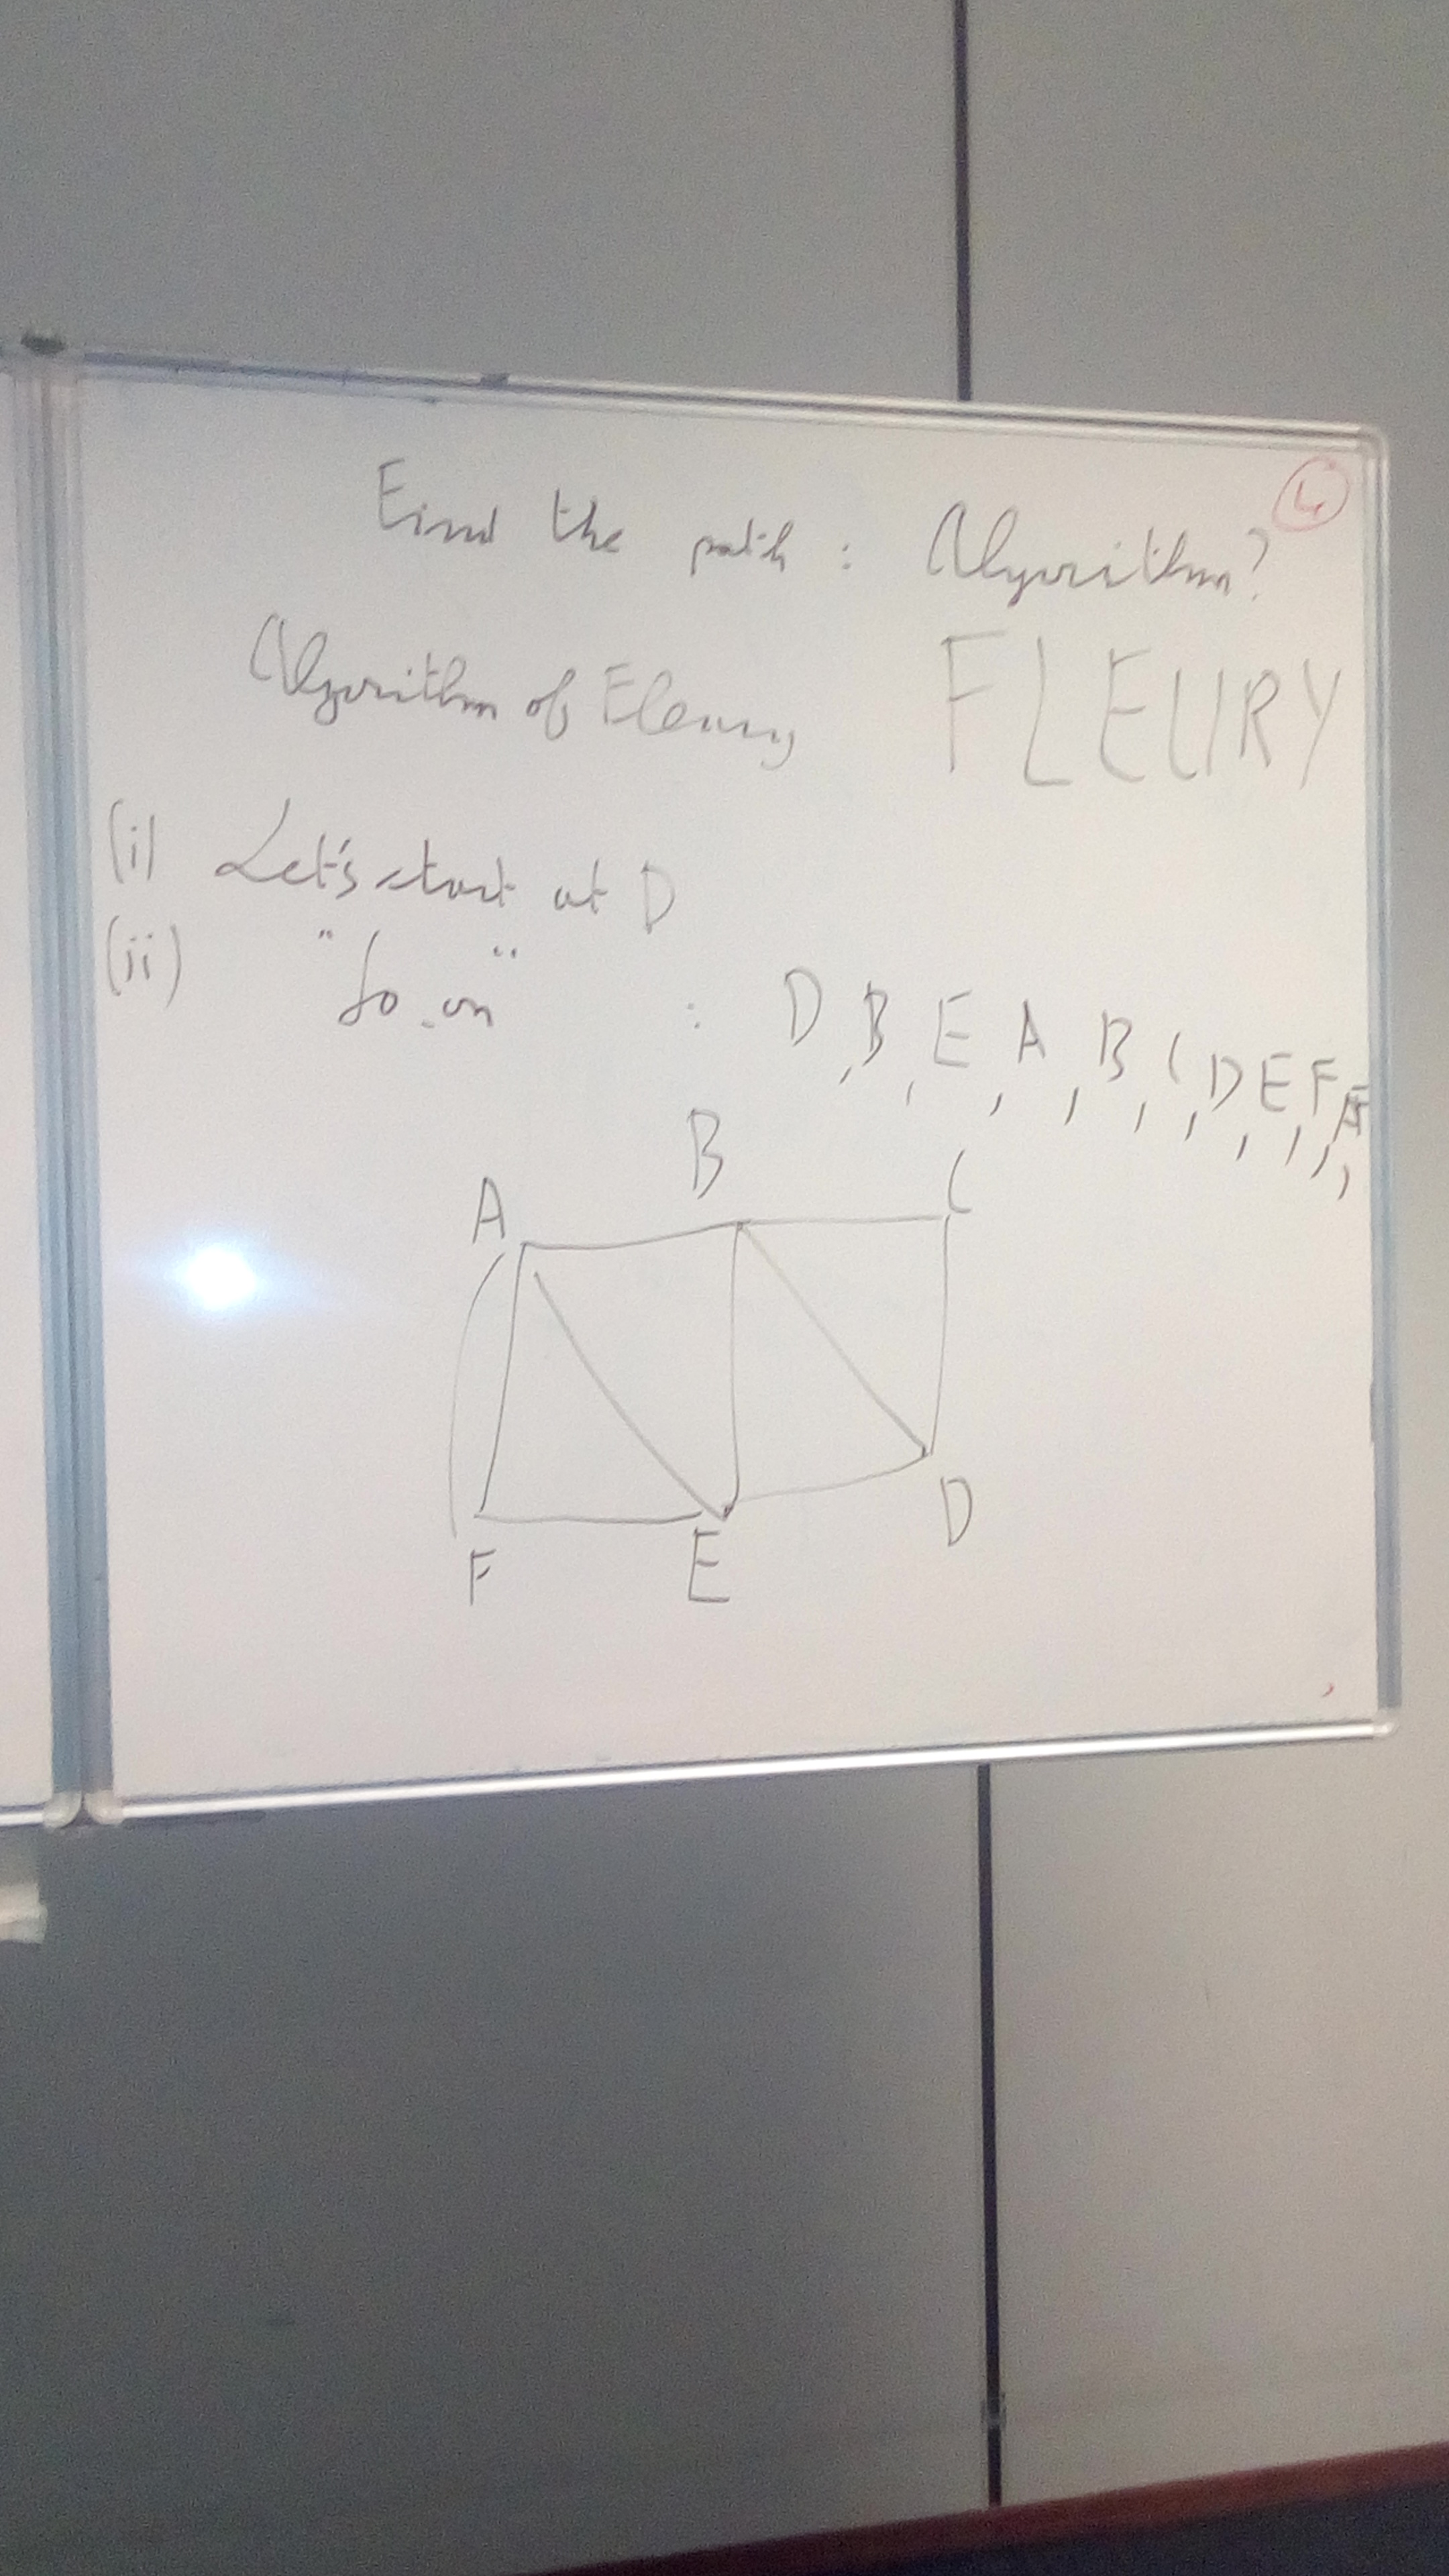 Find the path : Algorithm? 4
Algorithm of Fleury FLEURY
(i) Let's start at D
(ii) "Go on" : D, B, E, A, B, C, D, E, F, A, F
A B C
F E D